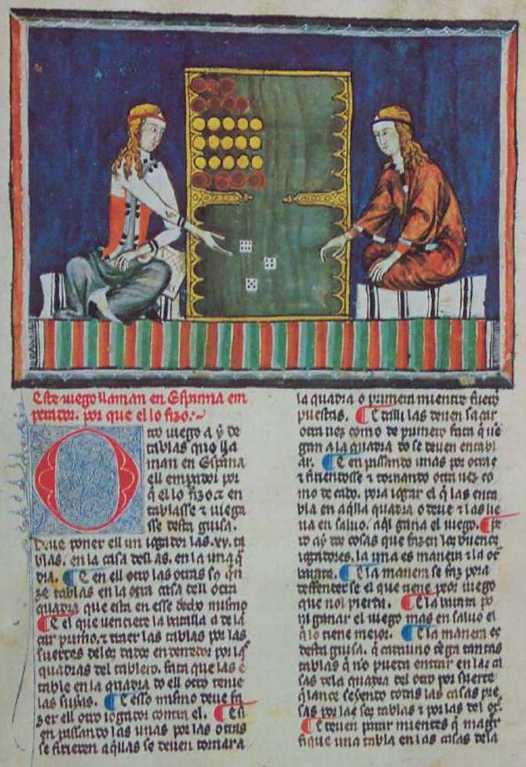 Este iuego llaman en Espanna em
perador. por que el lo fizo.
Otro iuego a y de
tablas que lla
man en Espanna
el emperador por
q el lo fizo. z en
tablasse z iuega
sse desta guisa.
Deue poner ell un iogador las .xv. ta
blas. en la casa dell as. en la una q
dra. E en ell otro las otras
ze tablas en la otra casa dell otra
quadra que esta en esse derecho mismo
E el que uenciere la batalla a de iu
primo. z traer las tablas por las
suertes de los dados en derredor por las
quadras del tablero. fata que las en
table en la quadra do ell otro tiene
las suyas. E esso mismo deue fa
zer ell otro iogador contra el. E si
en passando las unas por las otras
se firieren aqllas se deuen tornar a
la quadra o primera miente fueron
puestas. E dalli las deuen sacar
otra uez como de primero fata que ue
gan a la quadra do se deuen entabl
ar. E en passando unas por otras
z firiendosse z tornando otra uez co
mo de cabo. por iogar el que las enta
bla en aqlla quadra o deue z las lie
ua en saluo. aql gana el iuego. E en
to ay dos cosas que fazen los buenos
iogadores. la una es manera z la otra
barata. E la manera se faz pora
deffender se el que tiene peor iuego
que nol pierda. E la barata po
ra ganar el iuego mas en saluo el
q lo tiene meior. E la manera es
desta guisa. que all uno dega tantas
tablas q no pueda entrar en las ca
sas dela quadra del otro por suerte
q lance seyendo todas las casas pre
sas por las sus tablas z por las del otro.
E deuen parar mientes que magar
fique una tabla en las casas dela